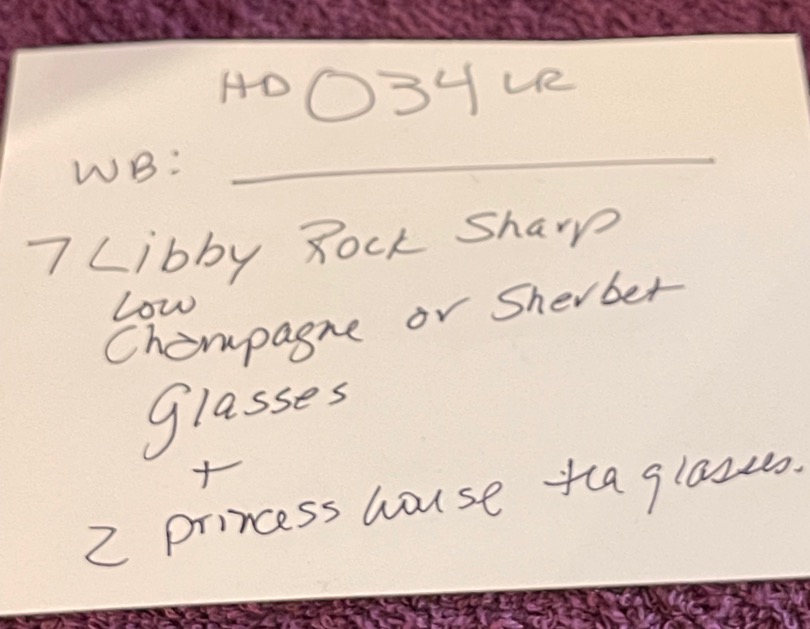 HD 034 LR
WB:
7 Libby Rock Sharp
Low
Champagne or Sherbet
Glasses
+
2 princess house tea glasses.